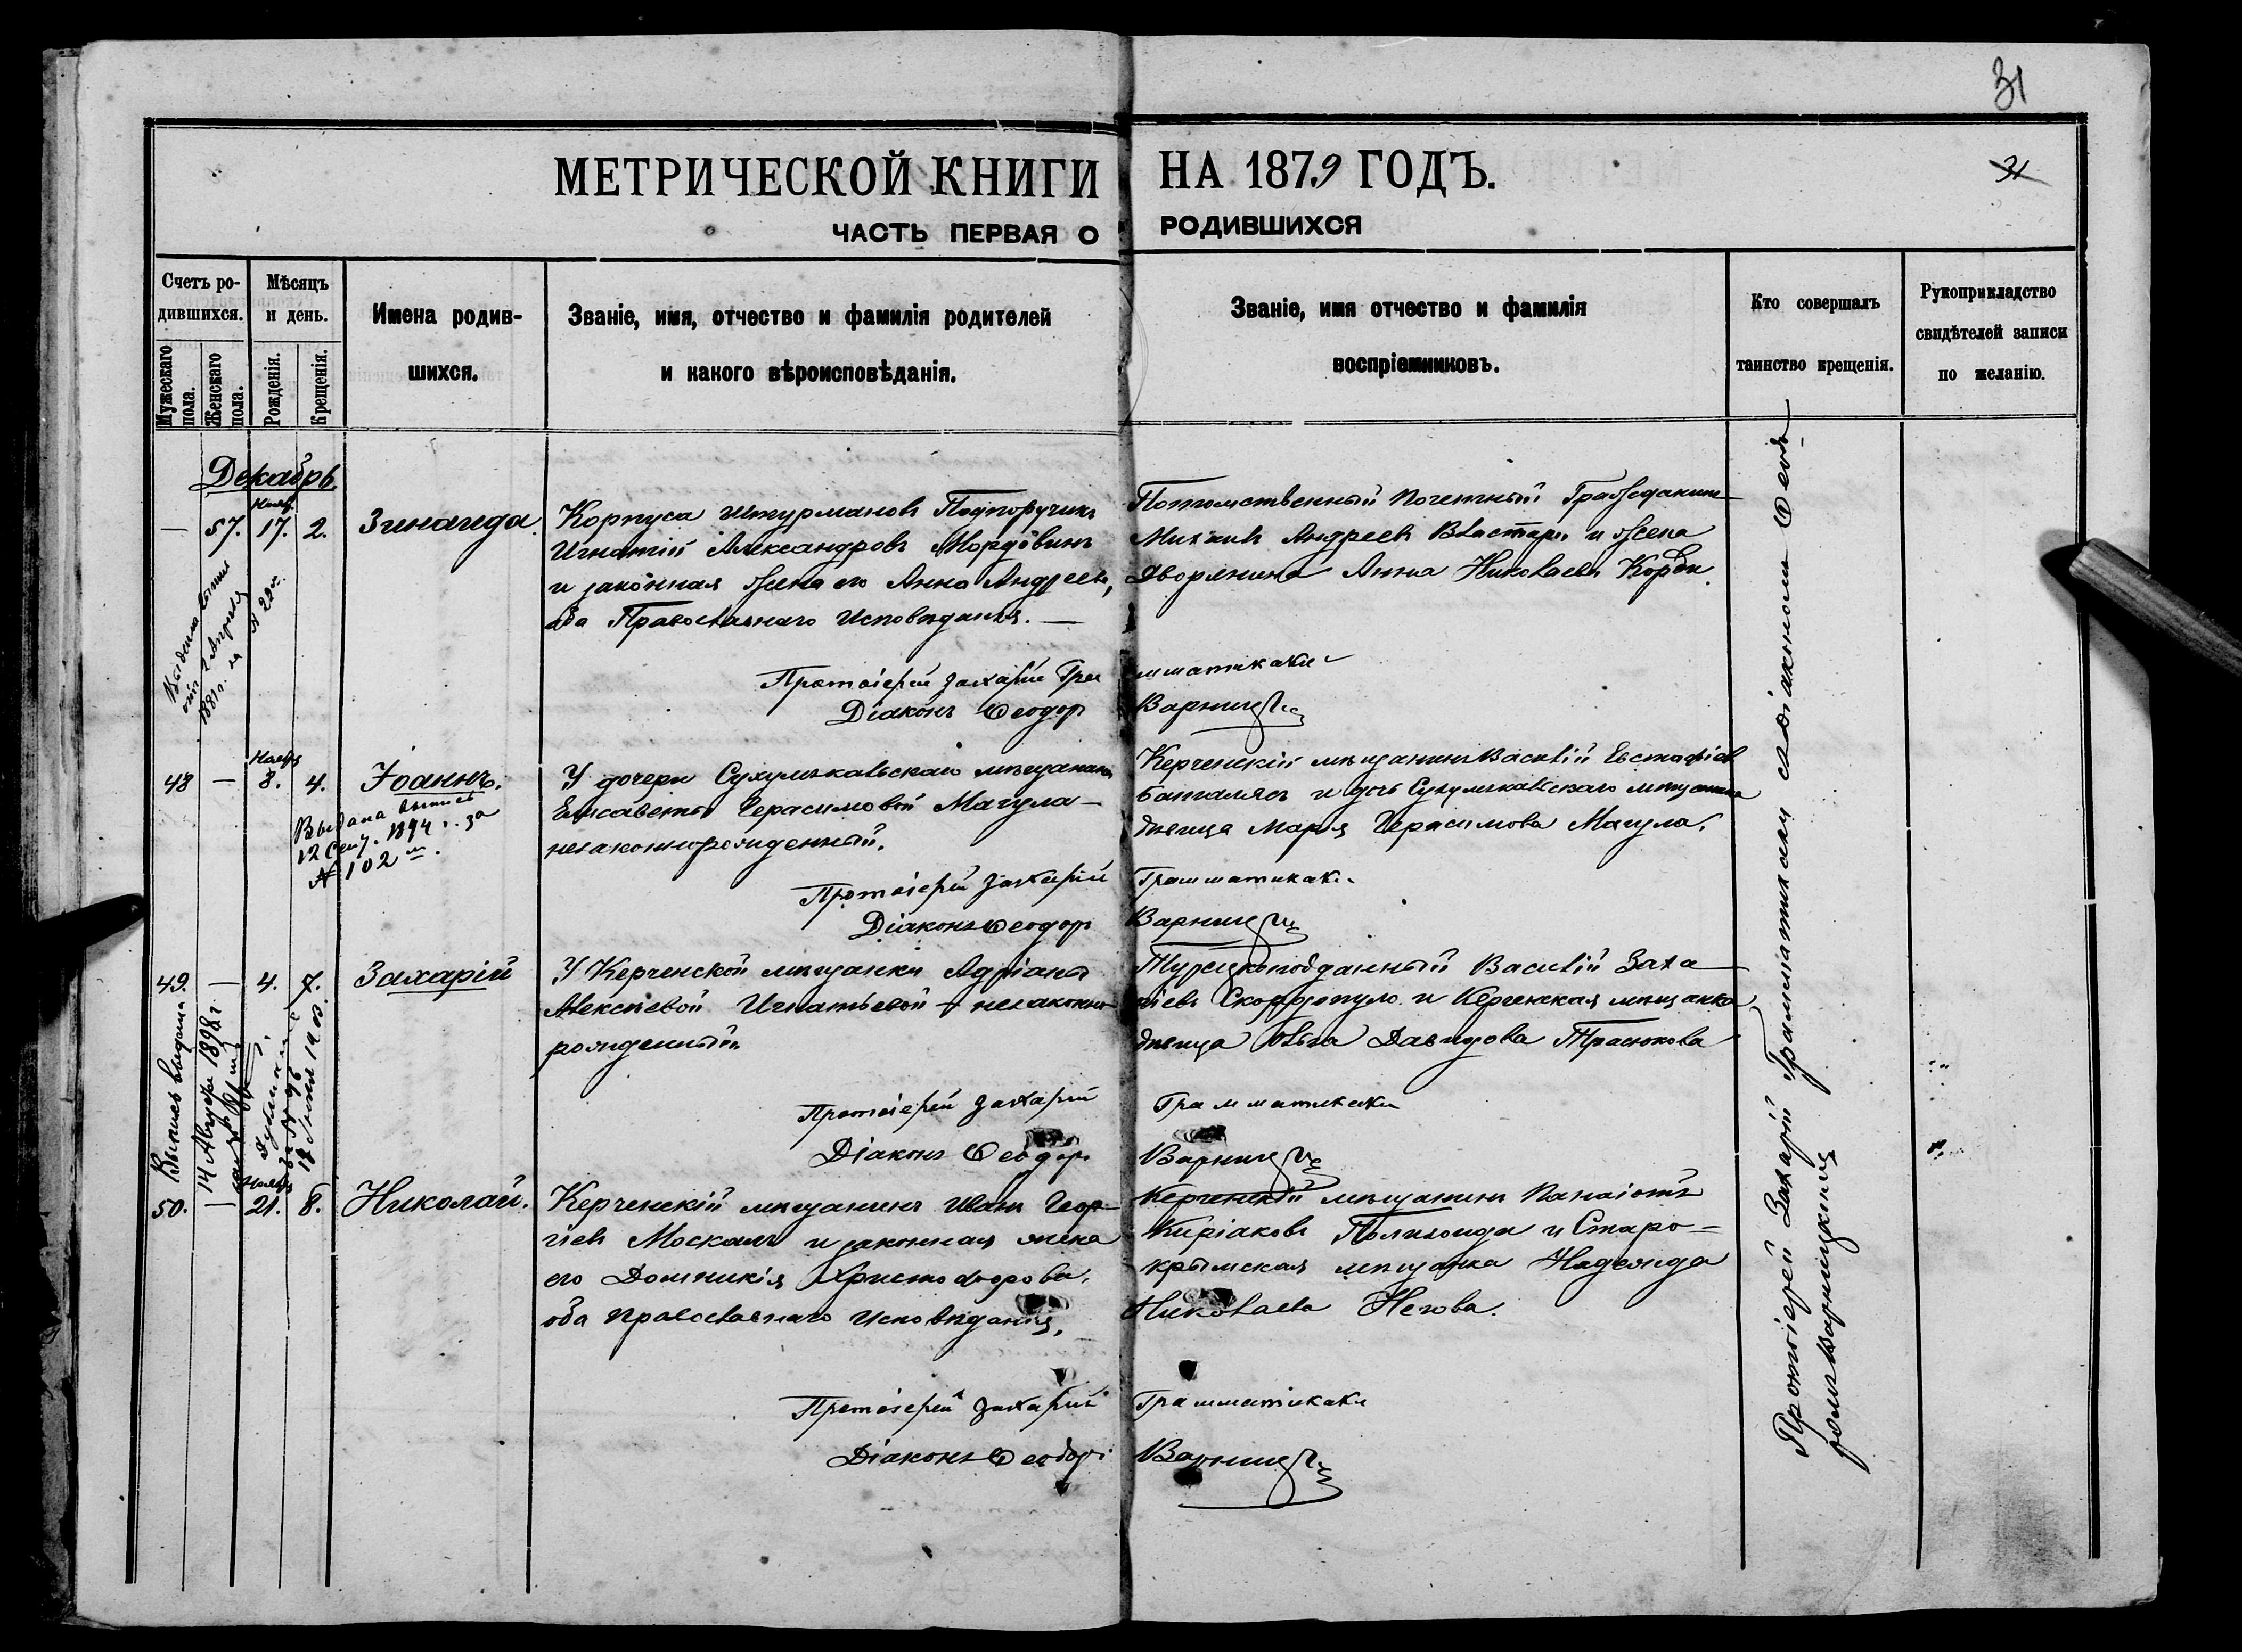 31
МЕТРИЧЕСКОЙ КНИГИ НА 1879 ГОДЪ.
31
ЧАСТЬ ПЕРВАЯ О РОДИВШИХСЯ
Счетъ родившихся.
Мужескаго пола.
Женскаго пола.
Мѣсяцъ и день.
Рожденія.
Крещенія.
Имена родив-
шихся.
Званіе, имя, отчество и фамилія родителей
и какого вѣроисповѣданія.
Званіе, имя отчество и фамилія
воспріемниковъ.
Кто совершалъ
таинство крещенія.
Рукоприкладство
свидѣтелей записи
по желанію.
Декабрь
Нояб.
— 57. 17. 2. Зинаида
Корпуса Штурмановъ Подпоручикъ
Игнатій Александровъ Мордовинъ
и законная жена его Анна Андреева,
оба Православнаго Исповѣданія. —
Потомственный Почетный Гражданинъ
Андреевъ Властари и жена
Дворянина Анна Николаева
1881 г.
Протоіерей Захарій Грамматикаки
Діаконъ Ѳеодоръ Варницкій
Нояб.
48 — 8. 4. Іоаннъ.
Выдана выпись
12 Сент. 1894 г. за
№ 102
У дочери Сухумъкальскаго мѣщанина
Елисаветы Герасимовой Магула —
незаконнорожденный.
Керченскій мѣщанинъ Василій Евстафіевъ
и дочь Сухумъкальскаго мѣщанина
дѣвица Марія Герасимова Магула.
Протоіерей Захарій Грамматикаки
Діаконъ Ѳеодоръ Варницкій
49. — 4. 7. Захарій
Выпись выдана
14 1898 г.
за № 96
1903.
У Керченской мѣщанки Адріаны
Алексѣевой Игнатьевой — незаконно
рожденный
Турецкоподданный Василій Заха
ріевъ Скордопуло и Керченская мѣщанка
дѣвица Ольга Давидова
Протоіерей Захарій Грамматикаки
Діаконъ Ѳеодоръ Варницкій
Нояб.
50. — 21. 8. Николай.
Керченскій мѣщанинъ Иванъ Геор-
гіевъ Москаль и законная жена
его Домникія Христофорова,
оба Православнаго Исповѣданія.
Керченскій мѣщанинъ Панаіотъ
Киріаковъ и Старо=
крымская мѣщанка Надежда
Николаева
Протоіерей Захарій Грамматикаки
Діаконъ Ѳеодоръ Варницкій
Протоіерей Захарій Грамматикаки съ діакономъ Ѳеодо-
ромъ Варницкимъ